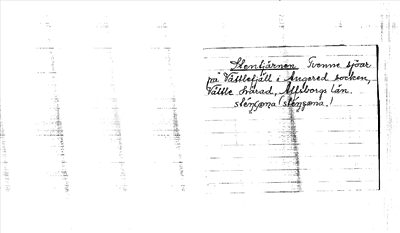 Stentjärnen Tvenne sjöar
på Vättlefjäll i Angered socken,
Vättle härad, Älfsborgs län.